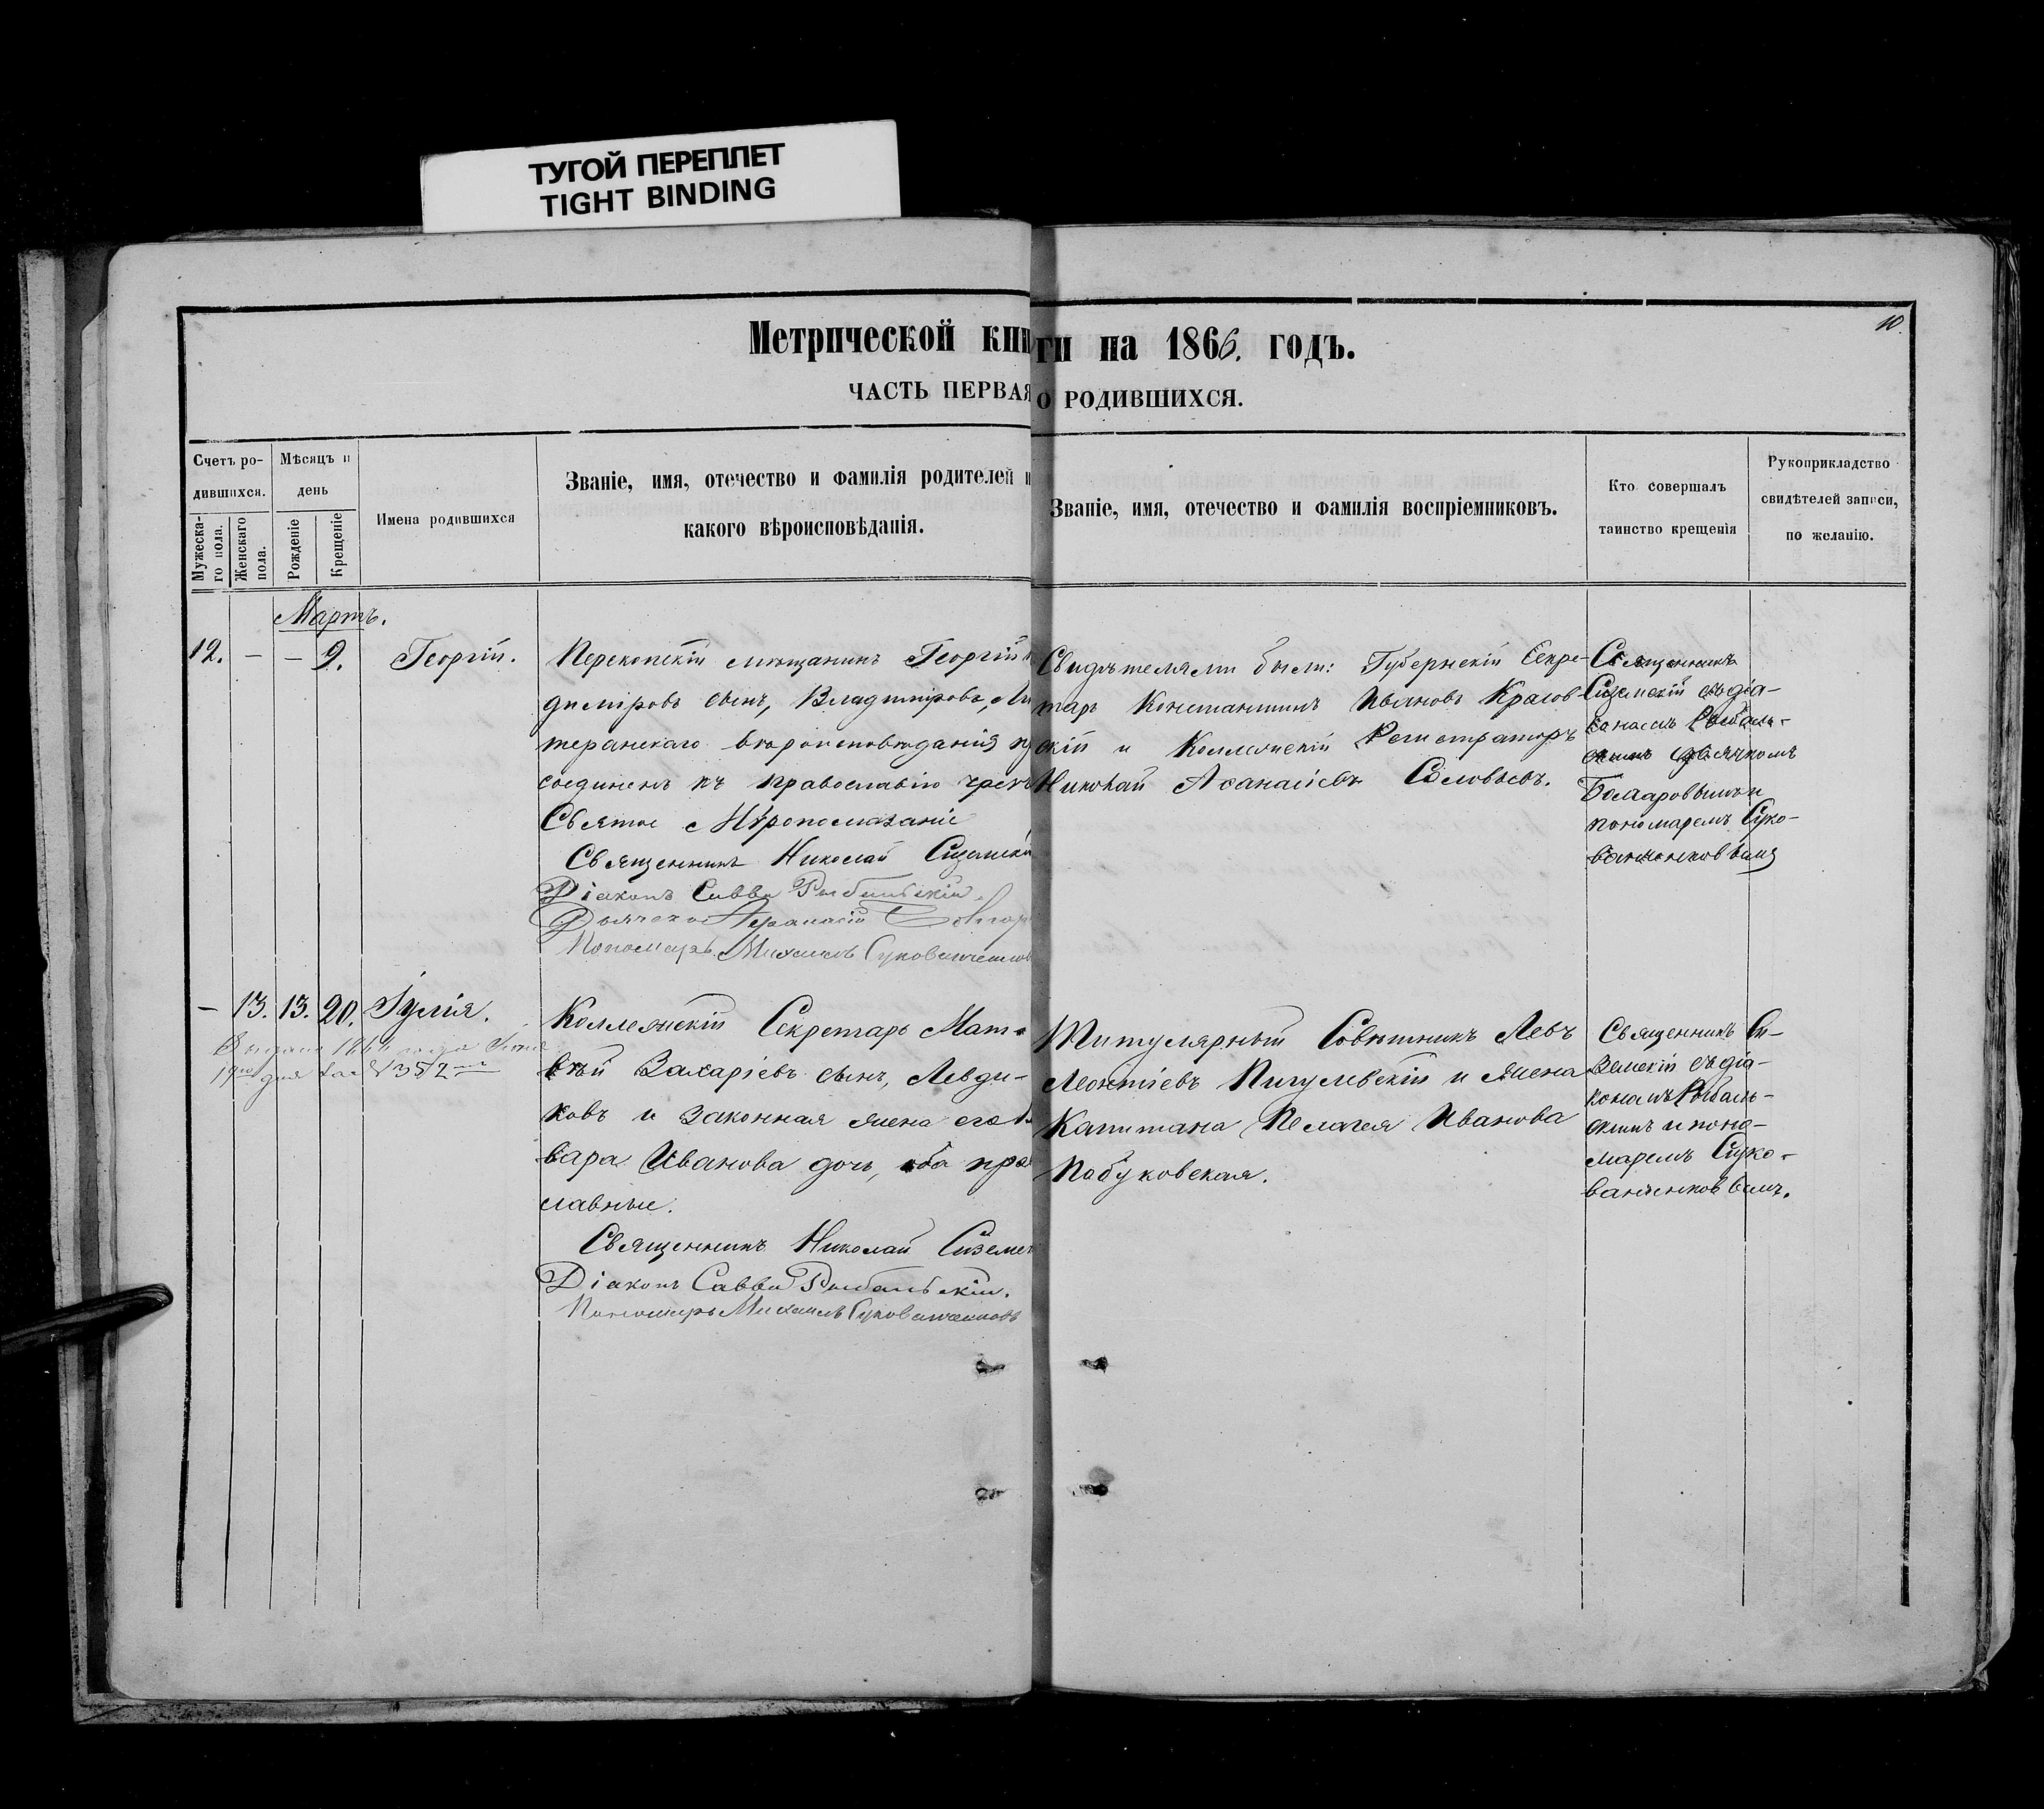 ТУГОЙ ПЕРЕПЛЕТ
TIGHT BINDING
10.
Метрической книги на 1866. годъ.
ЧАСТЬ ПЕРВАЯ О РОДИВШИХСЯ.
Счетъ ро-
дившихся.
Мужеска-
го пола.
Женскаго
пола.
Мѣсяцъ и
день
Рожденіе
Крещеніе
Имена родившихся
Званіе, имя, отечество и фамилія родителей и
какого вѣроисповѣданія.
Званіе, имя, отечество и фамилія воспріемниковъ.
Кто совершалъ
таинство крещенія
Рукоприкладство
свидѣтелей записи,
по желанію.
Мартъ.
12. — — 9. Георгій.
Перекопскій мѣщанинъ Георгій
диміровъ сынъ, Владиміровъ, Лю
теранскаго вѣроисповѣданія пр
соединенъ къ православію чрезъ
Святое Мѵропомазаніе
Священникъ Николай Сиземскі
Діаконъ Савва Рыбальскій.
Дьячекъ Афанасій
Пономарь Михаилъ
Свидѣтелями были: Губернскій Секре-
тарь Константинъ Ивановъ Красов-
скій и Коллежскій Регистраторъ
Николай Аѳанасіевъ Соловьевъ.
Священникъ
Сиземскій съ діа-
кономъ Рыбаль-
скимъ дьячкомъ
и
пономаремъ Суко-
— 13. 13. 20. Іулія.
Выдана года
19го дня за № 352
Коллежскій Секретарь Мат-
вѣй Захаріевъ сынъ, Левди-
ковъ и законная жена его
вара Иванова дочь, оба пра
славные.
Священникъ Николай Сиземс
Діаконъ Савва Рыбальскій.
Пономарь Михаилъ
Титулярный Совѣтникъ Левъ
Леонтіевъ Пигулевскій и жена
Капитана Пелагея Иванова
Пабуковская.
Священникъ Си-
земскій съ діа-
кономъ Рыбаль-
скимъ и поно-
маремъ Суко-